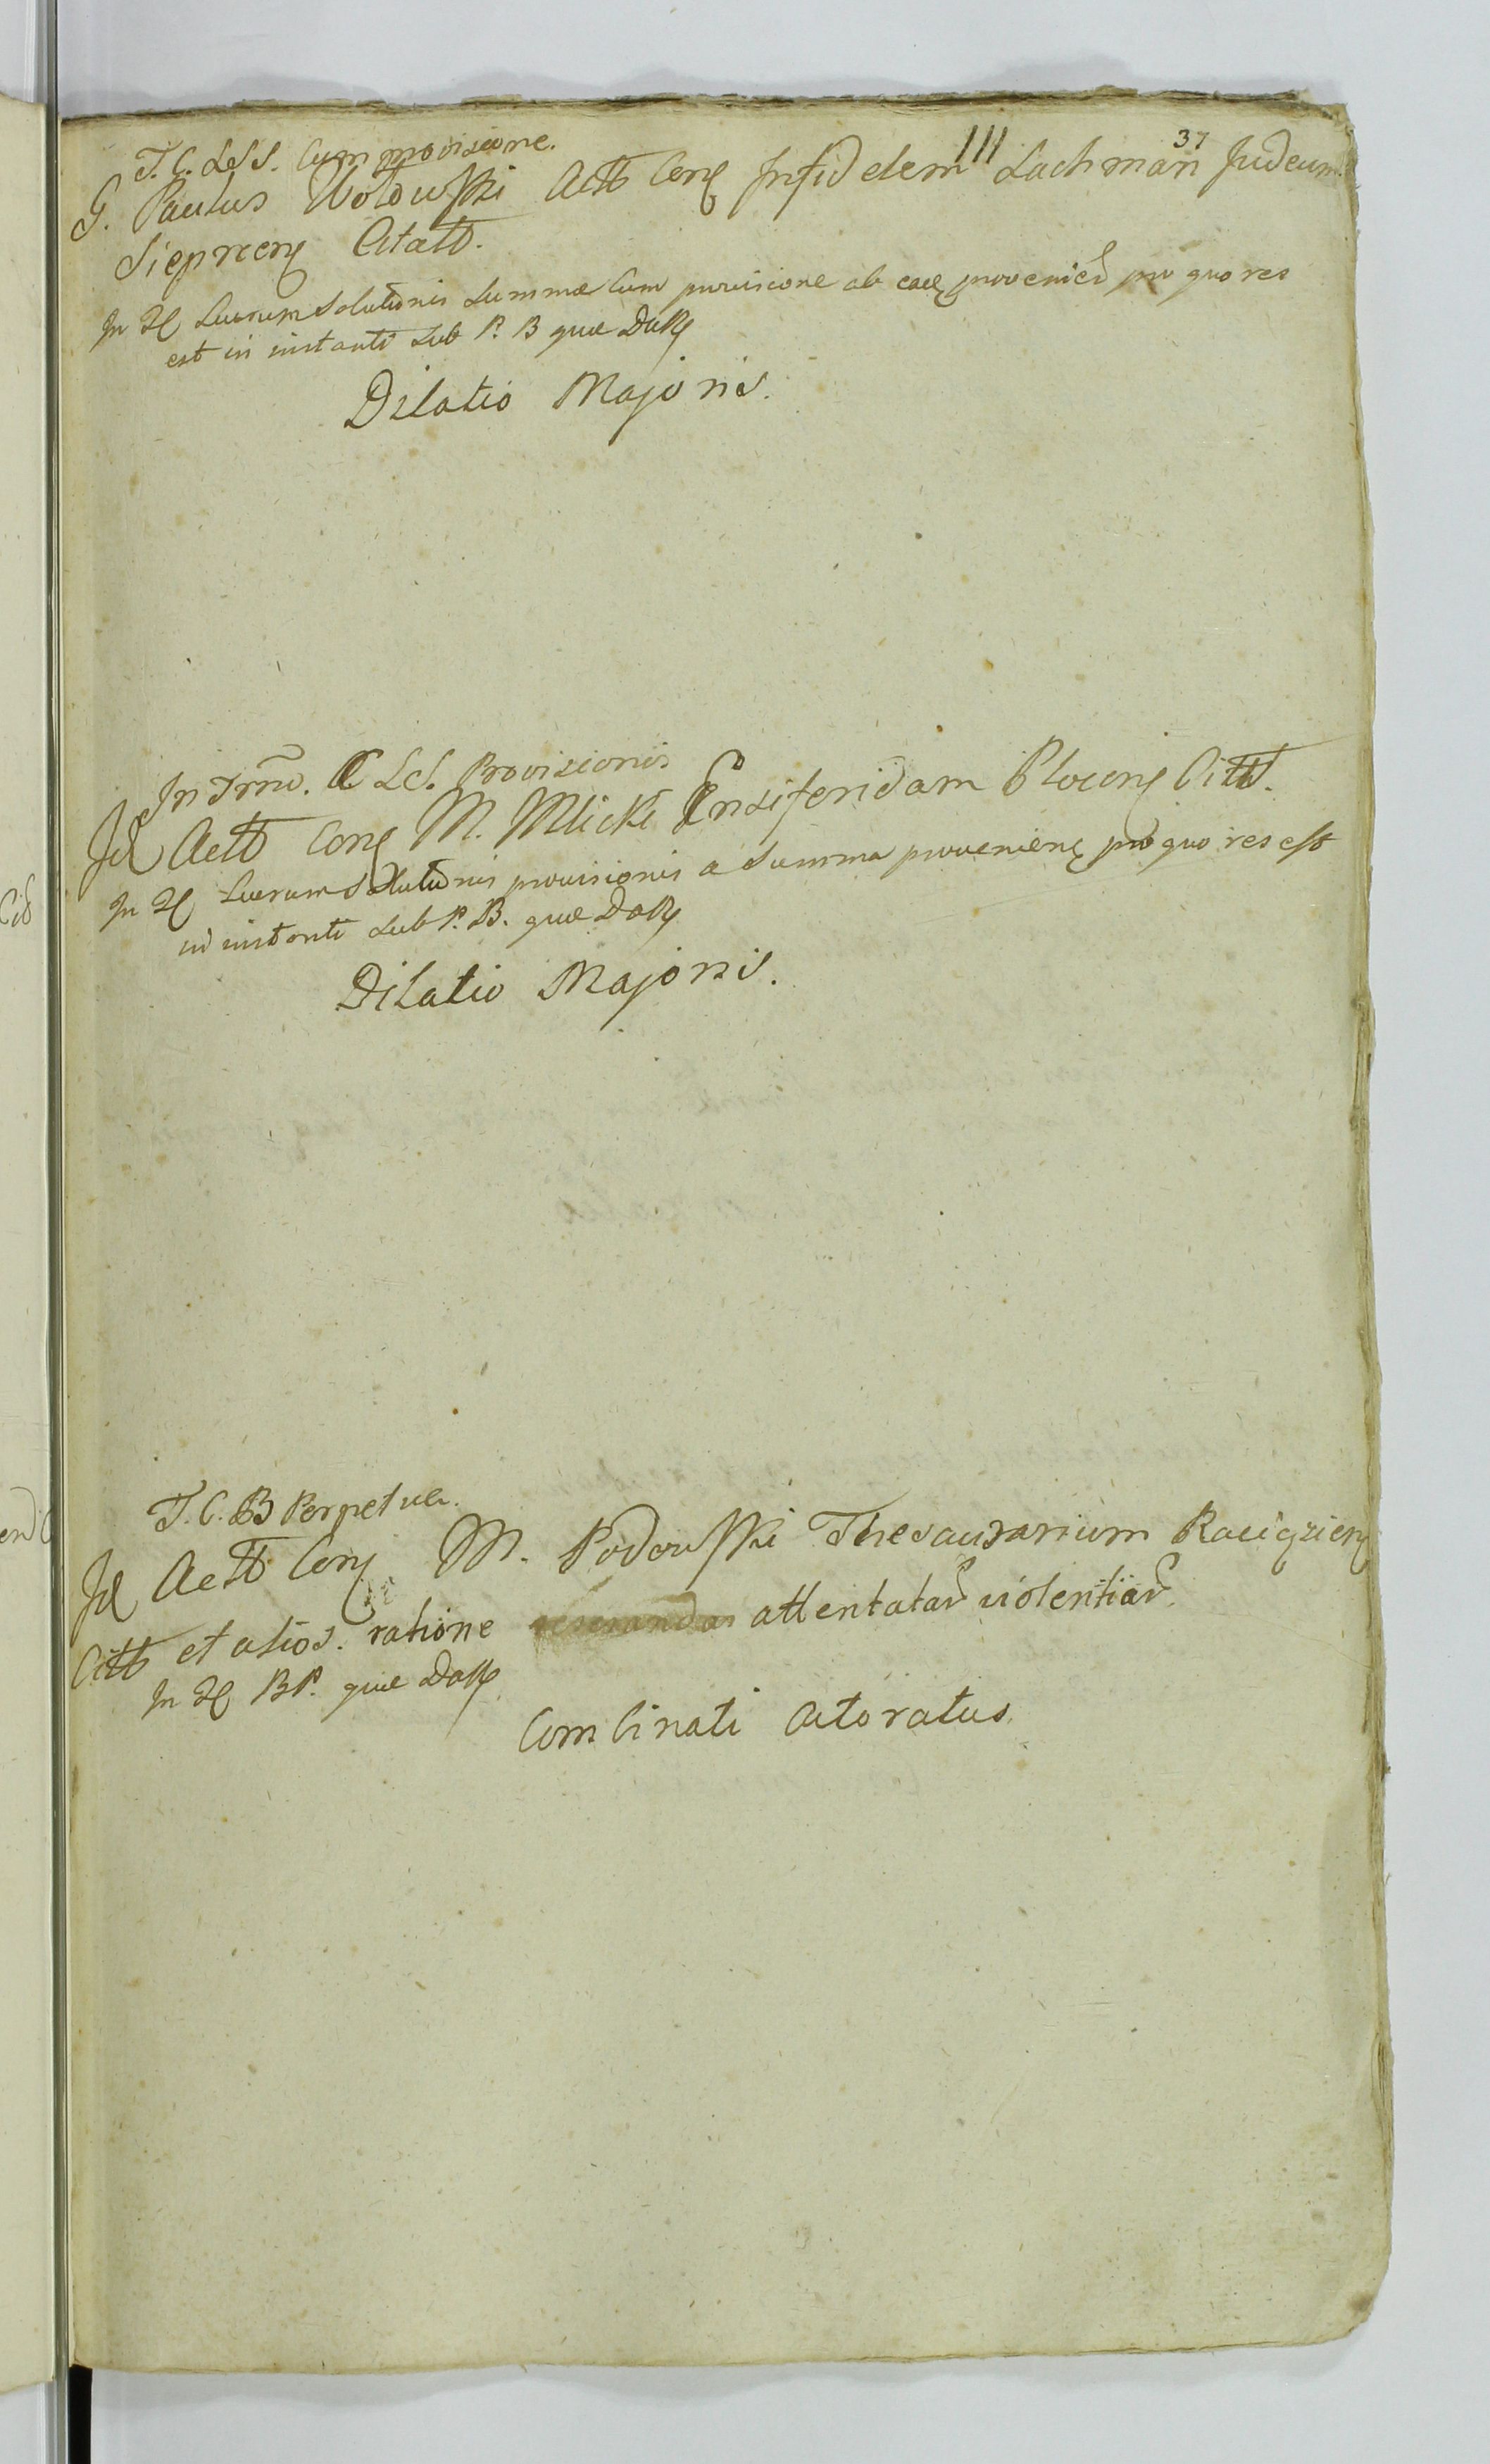 37
111
T. C. LSS. Cum provisione.
G. Paulus Wolowski Actt Conq Infidelem Lachman Judeum
Sieprcenq Citatt.
In Tq Lucrum Solutionis Summæ Cum provisione ab eaq provenien pro quo res
est in instanti Sub P. B quæ DaRq
Dilatio Majoris.
In Trno. C LS. Provisionis
Id Actt Conq M. Mlicki Ensiferidam Plocenq Citt.
In Tq Lucrum Solutionis provisionis a Summa provenienq pro quo res est
in instanti Sub P. B. quæ DaRq
Dilatio Majoris.
T. C. B Perpetuæ.
Id Actt Conq M. Podowski Thesaurarium Raciązienq
Citt et alios. ratione attentatar violentiar.
In Tq BP. quæ DaRq
Combinati Actoratus.
Cit
end C